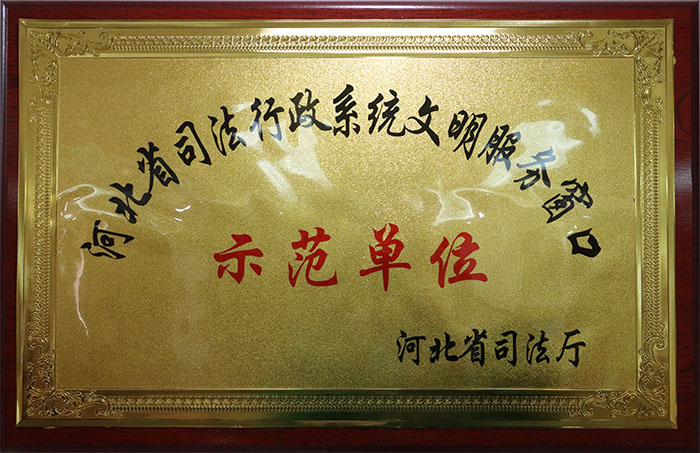 河北省司法行政系统文明服务窗口
示范单位
河北省司法厅